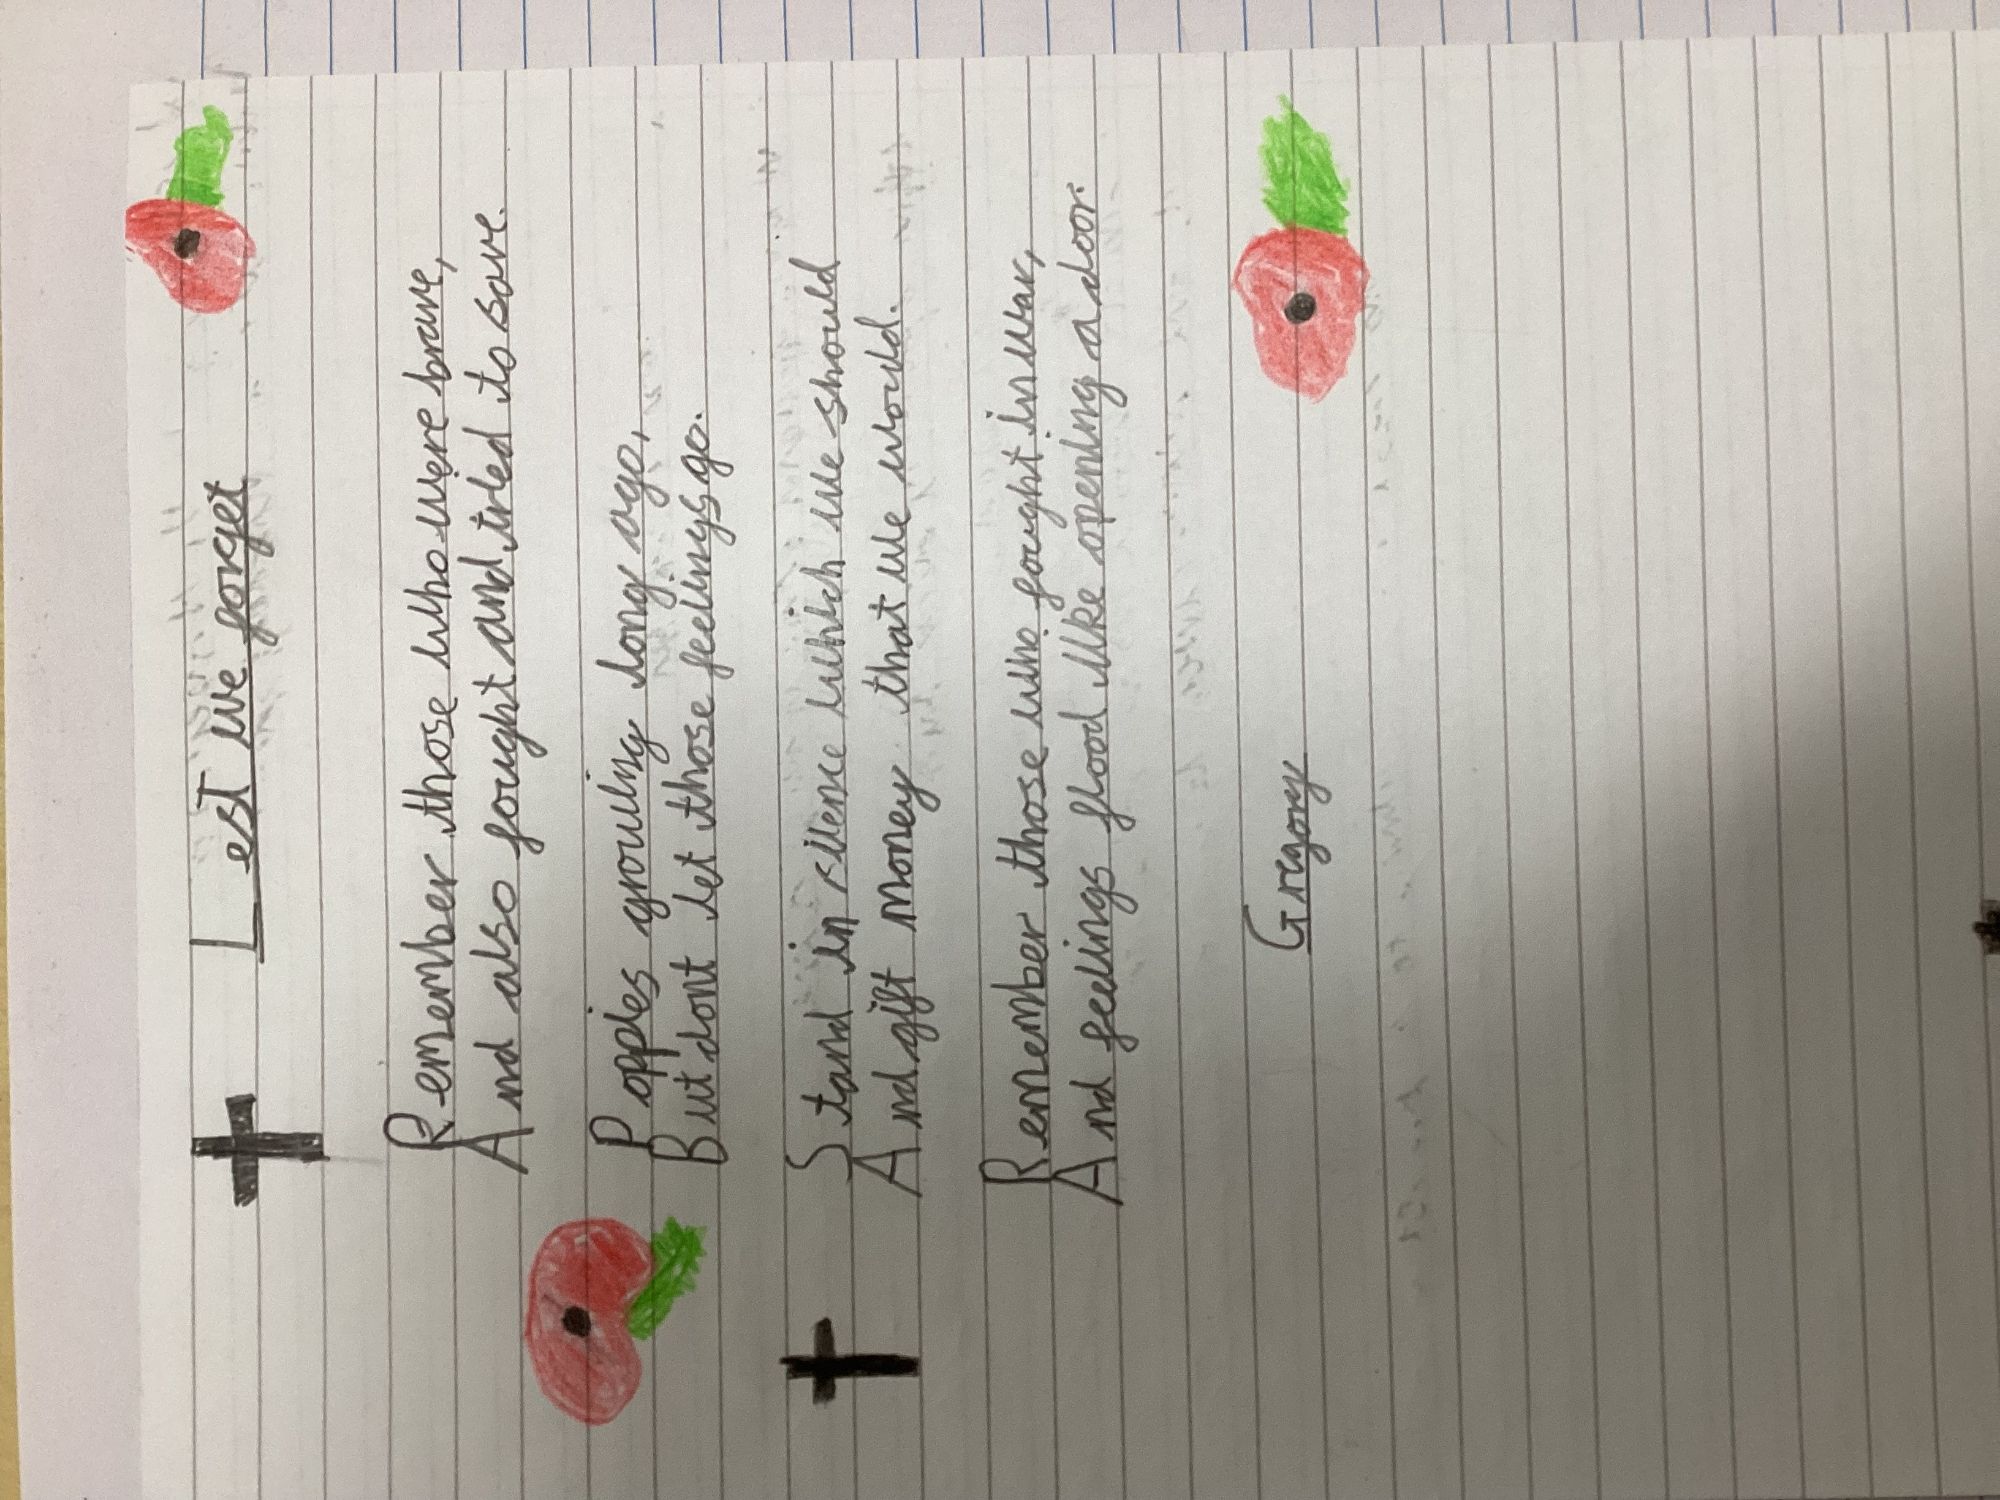 Lest we forget
Remember those who were brave,
And also fought and tried to save.
Poppies growing long ago,
But dont let those feelings go.
Stand in silence which we should
And gift money that we would.
Remember those who fought in war,
And feelings flood like opening a door.
Gregory